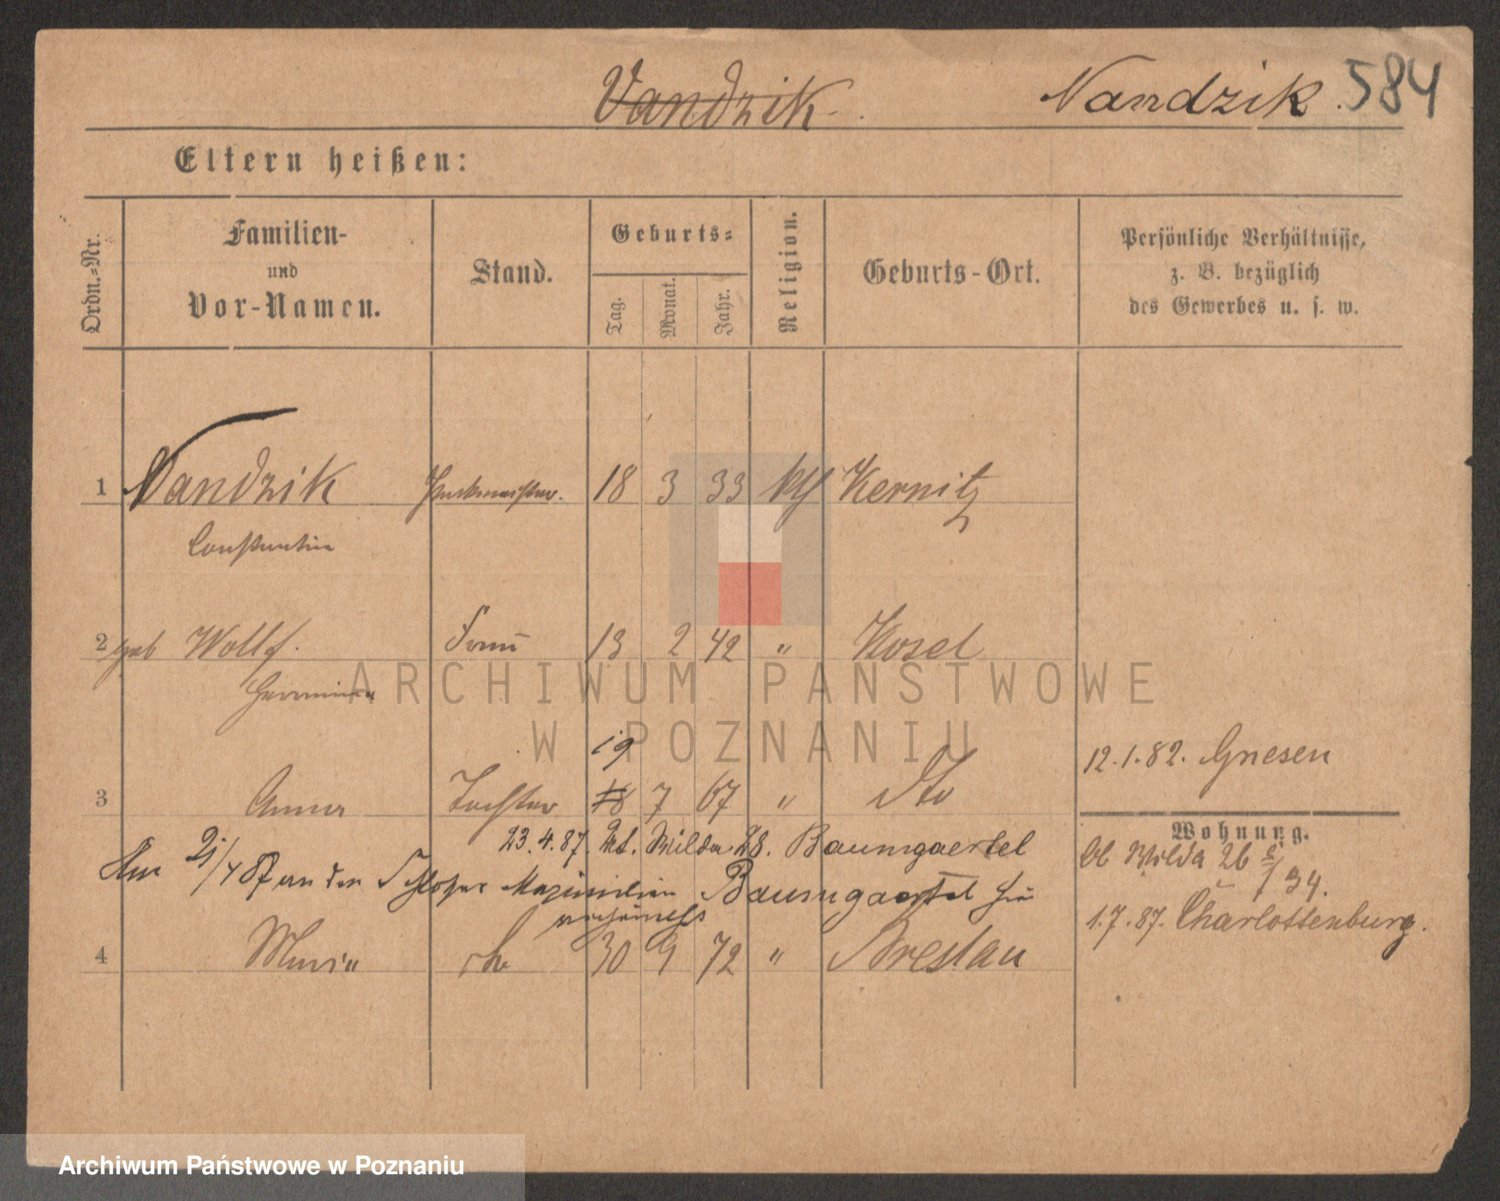 Vandzik. Nandzik. 584
Eltern heißen:
Ordn.-Nr.
Familien-
und
Vor-Namen.
Stand.
Geburts-
Tag.
Monat.
Jahr.
Religion.
Geburts-Ort.
Persönliche Verhältnisse,
z. B. bezüglich
des Gewerbes u. s. w.
1 Nandzik 18 3 33 Kernitz
Constantin
2 geb Wollf. Frau 13 2 42 " Kosel
Hermine
ARCHIWUM PAŃSTWOWE
W POZNANIU
19
3 Anna Tochter 18 7 67 " dto
12.1.82. Gnesen
Wohnung.
23.4.87. Wilda 28. Baumgaertel
Ob Wilda 26
34.
Am 21/4 87 an den Schlosser Maximilian Baumgaertel hier
verheirathet
1.7.87. Charlottenburg.
4 Maria do 30 9 72 " Breslau
Archiwum Państwowe w Poznaniu